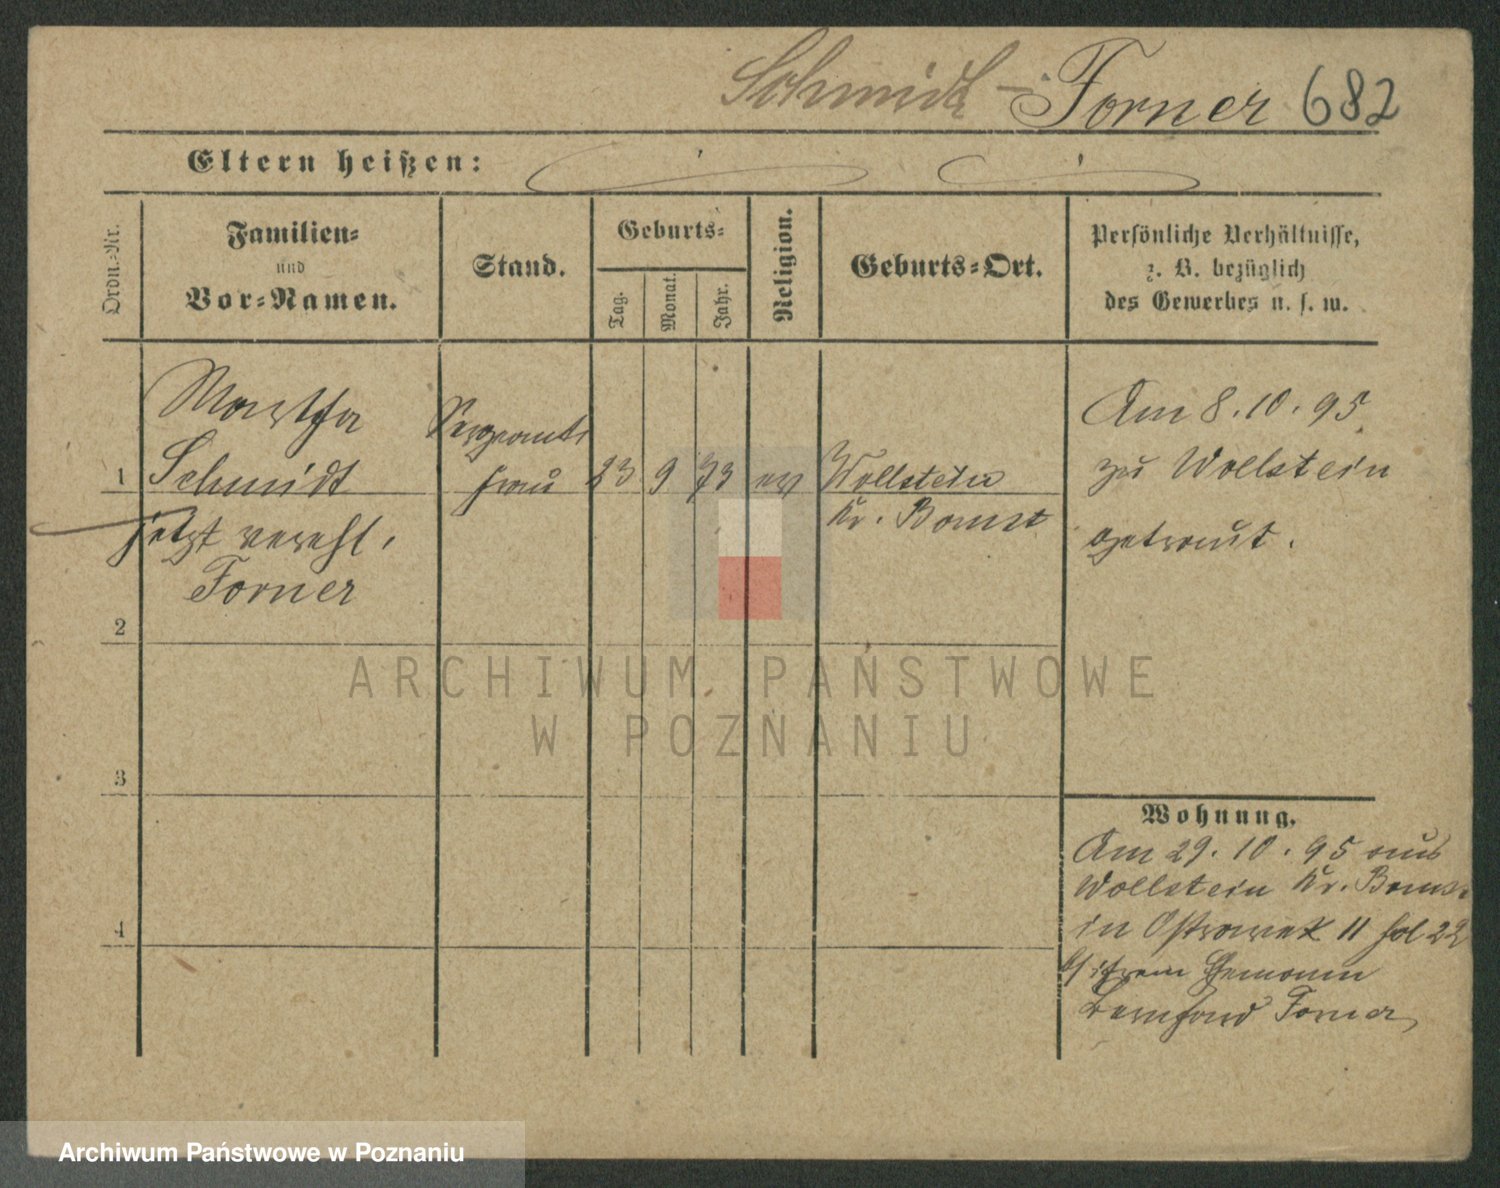 Schmidt - Forner 682
Eltern heißen:
Ordn.-Nr.
Familien-
und
Vor-Namen.
Stand.
Geburts-
Tag.
Monat.
Jahr.
Religion.
Geburts-Ort.
Persönliche Verhältnisse,
z. B. bezüglich
des Gewerbes u. s. w.
Martha
1 Schmidt
jetzt vereht.
Forner
Sergeants
frau
23 9 73 ev
Wollstein
Kr. Bomst
Am 8.10.95
zu Wollstein
getraut.
2
3
4
Wohnung.
Am 29.10.95 aus
Wollstein Kr. Bomst
in Ostrowek 11 fol 22
b/ ihrem Ehemann
Bernhard Forner
ARCHIWUM PAŃSTWOWE
W POZNANIU
Archiwum Państwowe w Poznaniu